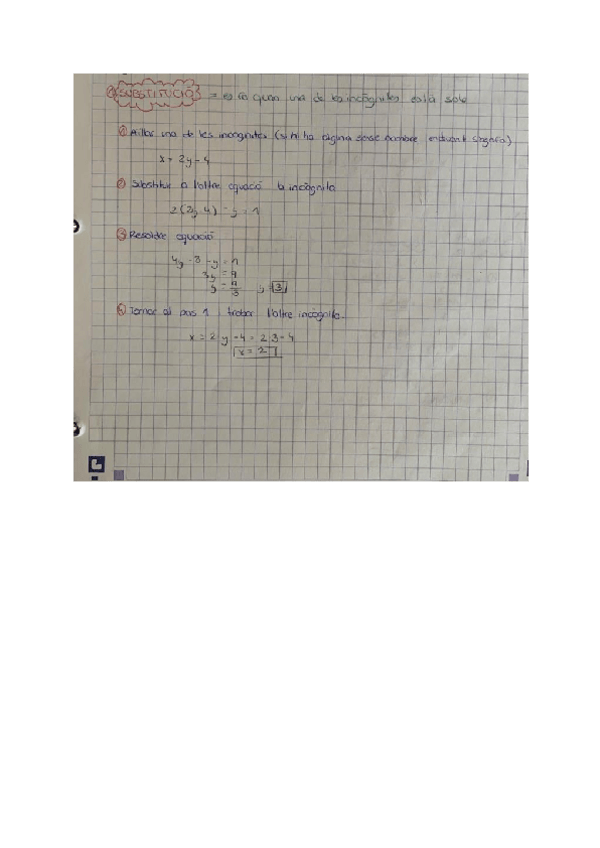 ① SUBSTITUCIÓ = es fa quan una de les incògnites està sola
① Aïllar una de les incògnites (si hi ha alguna sense nombre endavant s'agafa)
x = 2y - 4
② Substituir a l'altre equació la incògnita
2(2y-4) - y = 1
③ Resoldre equació
4y - 8 - y = 1
3y = 9
y = 9/3 y = 3
④ Tornar al pas 1 i trobar l'altre incògnita.
x = 2 y - 4 = 2 3 - 4
x = 2